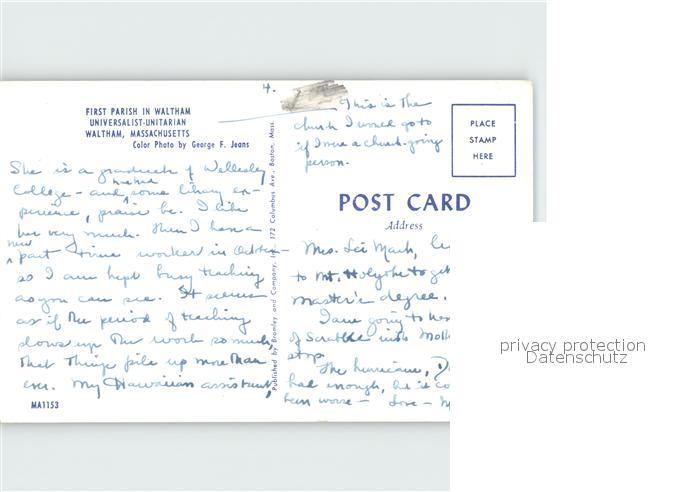 4.
FIRST PARISH IN WALTHAM
UNIVERSALIST-UNITARIAN
WALTHAM, MASSACHUSETTS
Color Photo by George F. Jeans
She is a graduate of Wellesley
College - and has had some library ex-
perience, praise be. I like
her very much. Then I have a
new part time worker in October -
so I am kept busy teaching
as you can see. It seems
as if the period of teaching
slows up the work so much,
that things pile up more than
ever. My Hawaiian assistant,
MA1153
Published by Bromley and Company, Inc., 172 Columbus Ave., Boston, Mass.
This is the
church I would go to
if I were a church-going
person.
PLACE
STAMP
HERE
POST CARD
Address
Mrs. Lei Mark,
to Mt. Holyoke to get
master's degree.
I am going to
of Scrabble with
stop.
The hurricane,
had enough, he is
been worse - Love -
privacy protection
Datenschutz